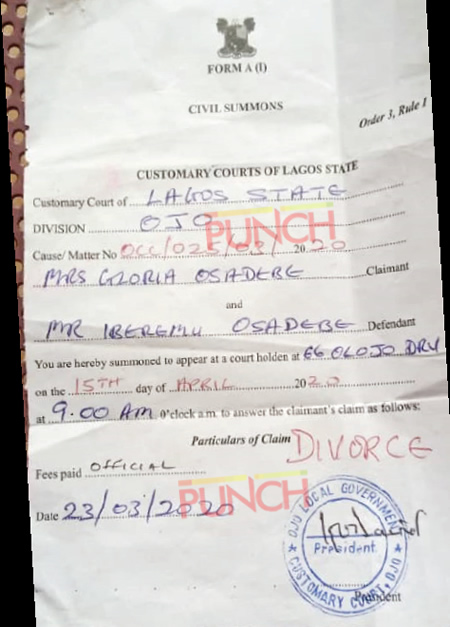 FORM A (I)
CIVIL SUMMONS
Order 3, Rule 1
CUSTOMARY COURTS OF LAGOS STATE
Customary Court of LAGOS STATE
DIVISION OJO
PUNCH
Cause/ Matter No OCC/025/03/ 2020
MRS GLORIA OSADEBE Claimant
and
MR IBEREMU OSADEBE Defendant
You are hereby summoned to appear at a court holden at EG OLOJO DRV
on the 15TH day of APRIL 2020
at 9.00 AM O'clock a.m. to answer the claimant's claim as follows:
Particulars of Claim DIVORCE
Fees paid OFFICIAL
PUNCH
Date 23/03/2020
OJO LOCAL GOVERNMENT
President
CUSTOMARY COURT, OJO
President